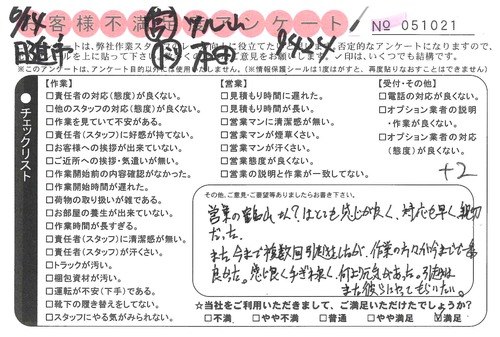 お客様不満足度アンケート
№ 051021
5/14
ありません。否定的なアンケートになりますので、
※このアンケートは、アンケート目的以外には使用いたしません。(※情報保護シールは1度はがすと、再度貼りなおすことはできません)
チェックリスト
【作業】
□責任者の対応(態度)が良くない。
□他のスタッフの対応(態度)が良くない。
□作業を見ていて不安がある。
□責任者(スタッフ)に好感が持てない。
□お客様への挨拶が出来ていない。
□ご近所への挨拶・気遣いが無い。
□作業開始前の内容確認がなかった。
□作業開始時間が遅れた。
□荷物の取り扱いが雑である。
□お部屋の養生が出来ていない。
□作業時間が長すぎる。
□責任者(スタッフ)に清潔感が無い。
□責任者(スタッフ)が汗くさい。
□トラックが汚い。
□梱包資材が汚い。
□運転が不安(下手)である。
□靴下の履き替えをしてない。
□スタッフにやる気がみられない。
【営業】
□見積もり時間に遅れた。
□見積もり時間が長い。
□営業マンに清潔感が無い。
□営業マンが煙草くさい。
□営業マンが汗くさい。
□営業態度が良くない。
□営業の説明と作業が一致してない。
【受付・その他】
□電話の対応が良くない。
□オプション業者の説明
・作業が良くない。
□オプション業者の対応
(態度)が良くない。
+2
その他、ご意見・ご要望等ありましたらお書き下さい。
とても感じが良く、対応も早く、親切
だった。
また今まで複数回引越をしたが、作業の方々が今までで一番
良かった。感じ良く手ぎわ良く、何より元気があった。引越は
また彼らにやってもらいたい。
☆当社をご利用いただきまして、ご満足いただけたでしょうか?
□不満 □やや不満 □普通 □やや満足 ☑満足